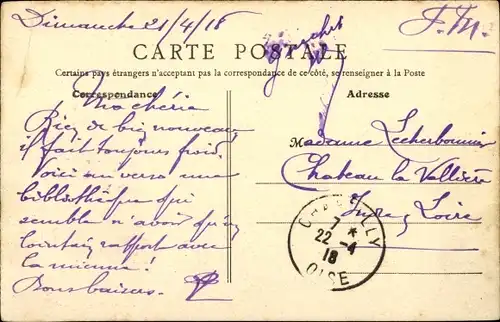 Dimanche 21/4/18
F.M.
CARTE POSTALE
Certains pays étrangers n'acceptant pas la correspondance de ce côté, se renseigner à la Poste
Correspondance
Adresse
Ma chérie
Rien de bien nouveau,
il fait toujours froid.
Voici un verso une
bibliothèque qui
semble n'avoir qu'un
lointain rapport avec
la mienne!
Bons baisers.
Madame Lecherbonnier
Chateau la Vallière
Indre & Loire
CHANTILLY
7 *
22 -4
18
OISE